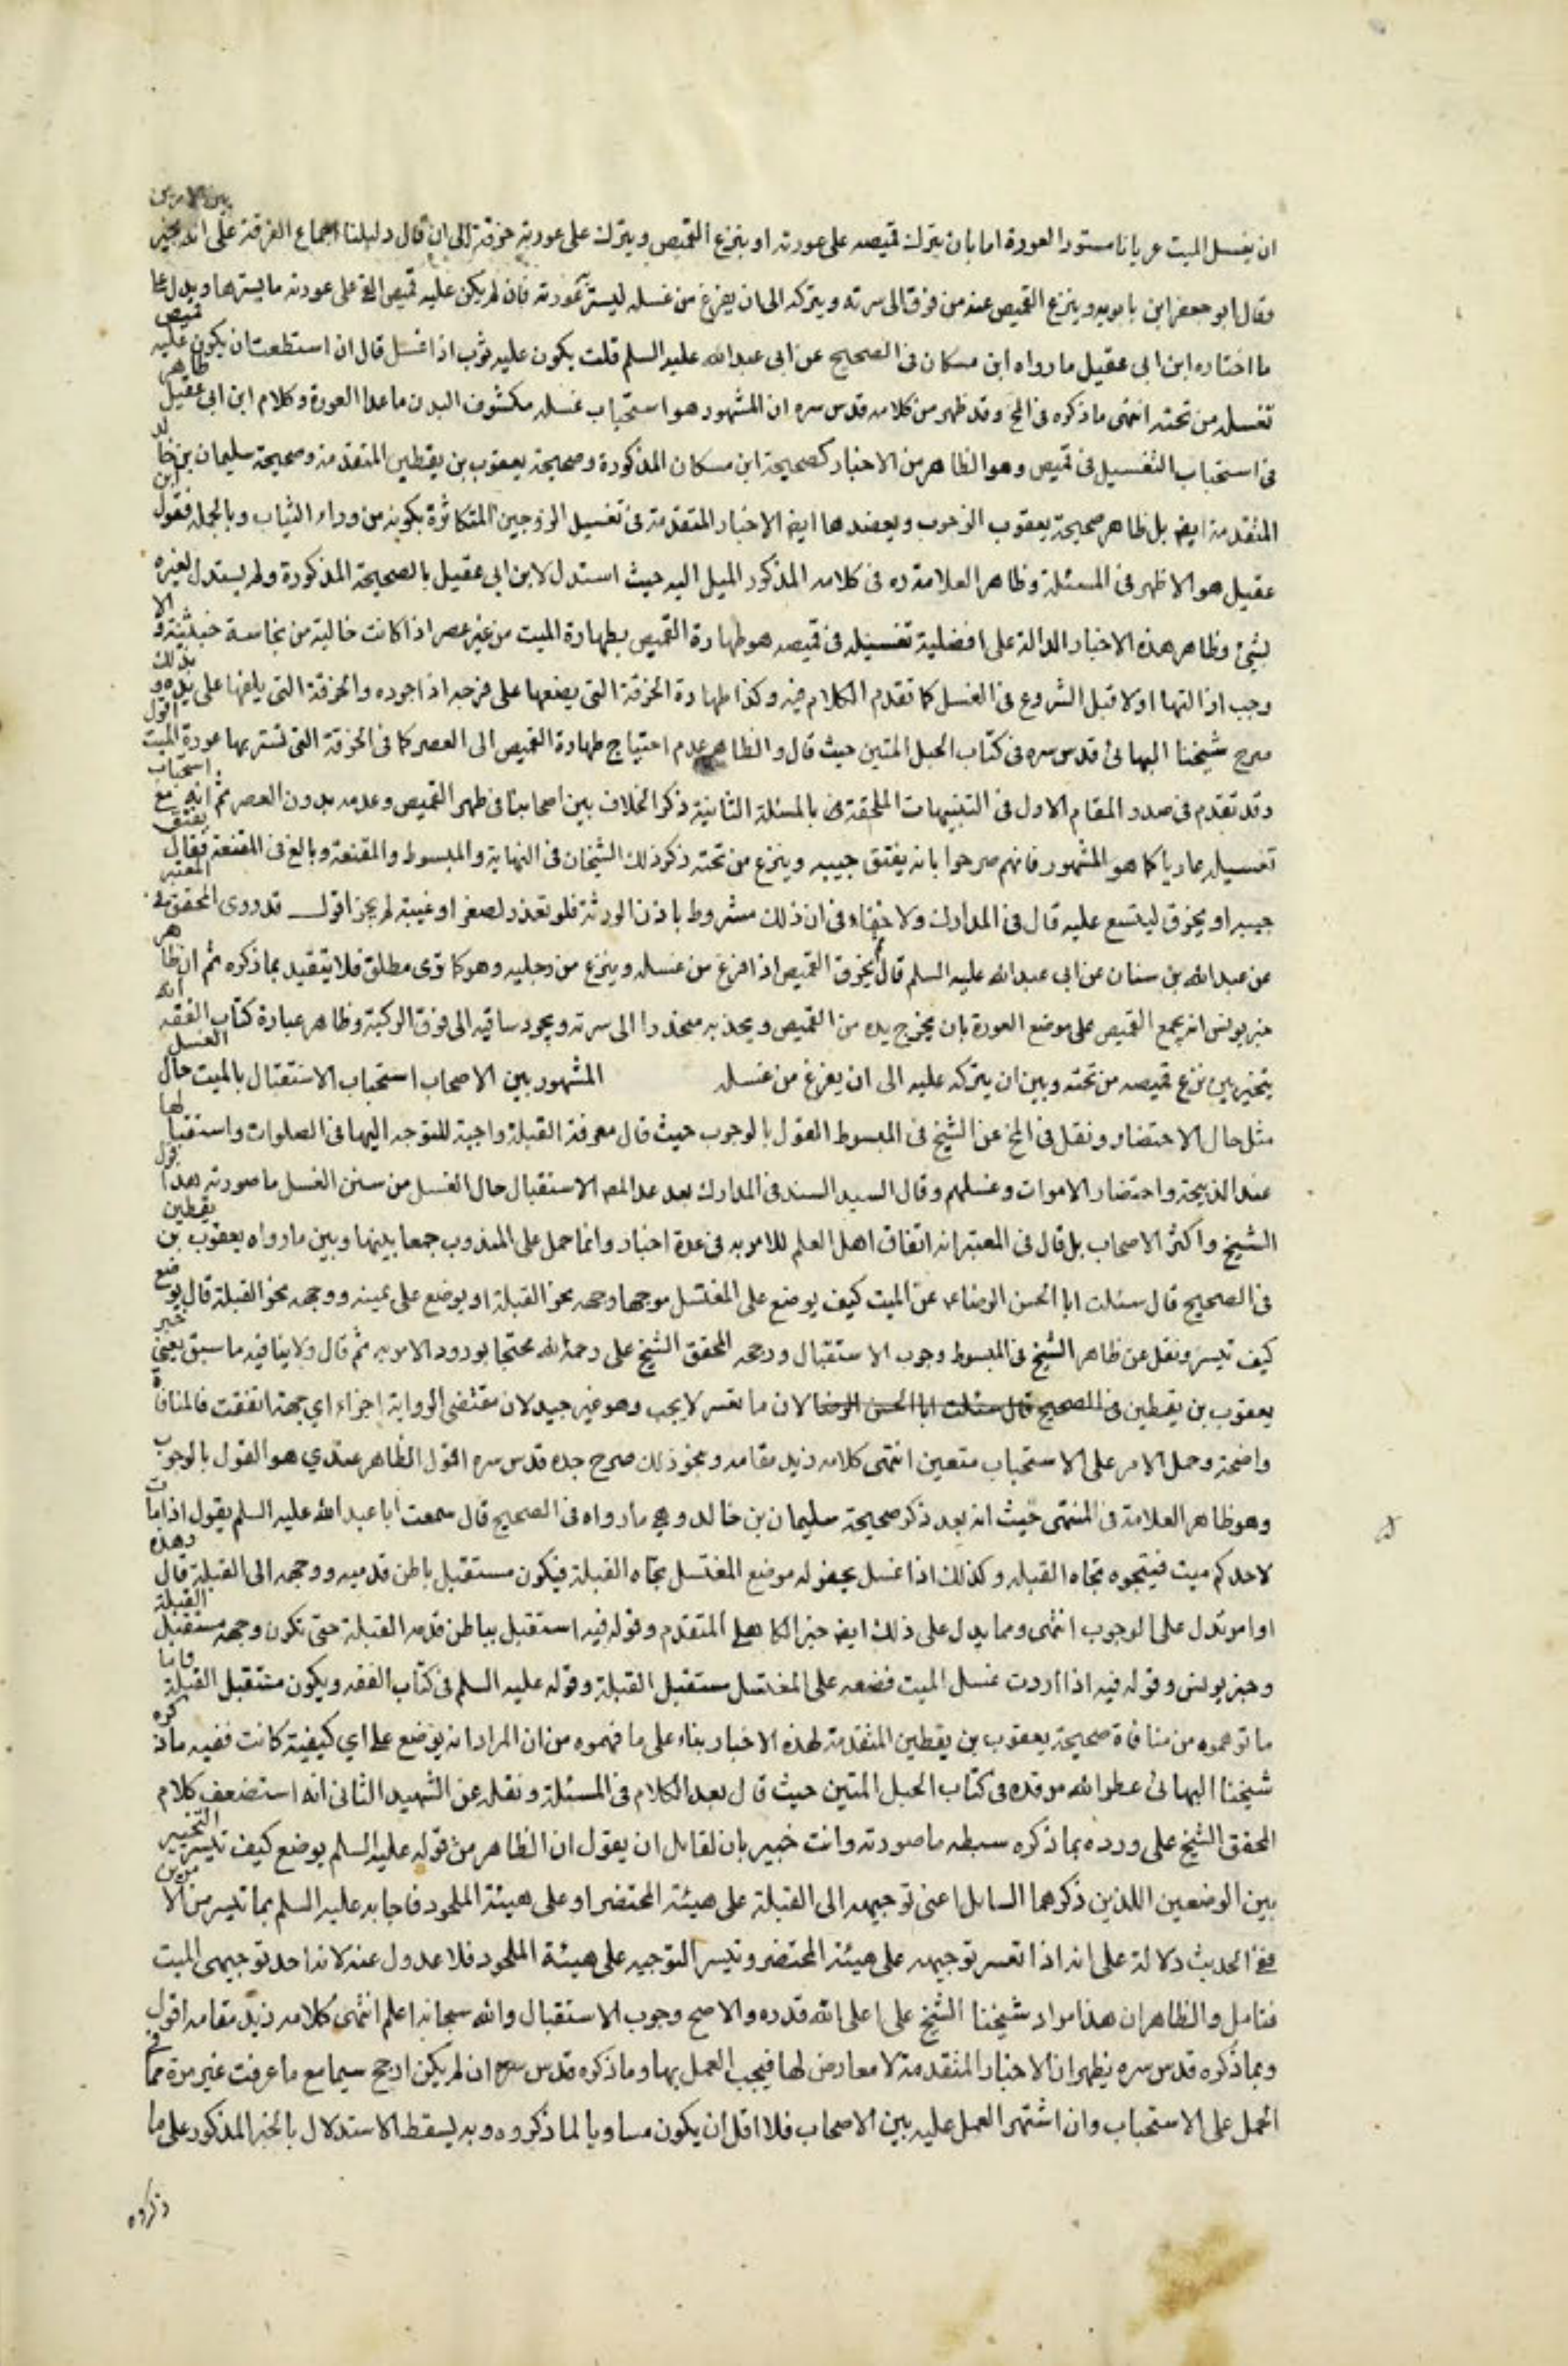 ان يغسل الميت عريانا مستور العورة اما بان يترك قميصه على عورته او ينزع القميص ويترك على عورته خرقة الى ان قال دليلنا اجماع الفرقة على انه مخير بين الامرين
وقال ابو جعفر ابن بابويه وينزع القميص عنه من فوق الى سرته ويتركه الى ان يفرغ من غسله ليستر عورته فان لم يكن عليه قميص القى على عورته ما يسترها ويدل على
ما اختاره ابن ابي عقيل ما رواه ابن مسكان فى الصحيح عن ابى عبد الله عليه السلم قلت يكون عليه ثوب اذا غسل قال ان استطعت ان يكون عليه قميص
تغسله من تحته انتهى ما ذكره فى المخ وقد ظهر من كلامه قدس سره ان المشهور هو استحباب غسله مكشوف البدن ما عدا العورة وكلام ابن ابى عقيل ظاهر
فى استحباب التغسيل فى قميص وهو الظاهر من الاخبار كصحيحة ابن مسكان المذكورة وصحيحة يعقوب بن يقطين المتقدمة وصحيحة سليمان بن خالد
المتقدمة ايضا بل ظاهر صحيحة يعقوب الوجوب ويعضدها ايضا الاخبار المتقدمة فى تغسيل الزوجين المتكاثرة بكونه من وراء الثياب وبالجمله فقول ابن
عقيل هو الاظهر فى المسئلة وظاهر العلامة ره فى كلامه المذكور الميل اليه حيث استدل لابن ابى عقيل بالصحيحة المذكورة ولم يستدل لغيره
بشئ وظاهر هذه الاخبار الدالة على افضلية تغسيله فى قميصه هو طهارة القميص بطهارة الميت من غير عصر اذا كانت خالية من نجاسة خبثية والا
وجب ازالتها اولا قبل الشروع فى الغسل كما تقدم الكلام فيه وكذا طهارة الخرقة التى يضعها على فرجه اذا جرده والخرقة التى يلفها على يده وبذلك
صرح شيخنا البهائى قدس سره فى كتاب الحبل المتين حيث قال والظاهر عدم احتياج طهارة القميص الى العصر كما فى الخرقة التى تستر بها عورة الميت اقول
وقد تقدم فى صدر المقام الاول فى التنبيهات الملحقة بالمسئلة الثانية ذكر الخلاف بين اصحابنا فى طهر القميص وعدمه بدون العصر ثم انه مع استحباب
تغسيله عاريا كما هو المشهور فانهم صرحوا بانه يفتق جيبه وينزع من تحته ذكر ذلك الشيخان فى النهاية والمبسوط والمقنعة وبالغ فى المقنعة فقال يفتق
جيبه او يخرق ليتسع عليه قال فى المدارك ولا خفاء فى ان ذلك مشروط باذن الورثة فلو تعذر لصغر او غيبة لم يجز اقول قد روى المحقق فى المعتبر
عن عبد الله بن سنان عن ابى عبد الله عليه السلم قال يخرق القميص اذا فرغ من غسله وينزع من رجليه وهو كما ترى مطلق فلا يتقيد بما ذكره ثم ان ظاهر
خبر يونس انه يجمع القميص على موضع العورة بان يخرج يده من القميص ويجذبه منحذرا الى سرته ويجرد ساقيه الى فوق الركبة وظاهر عبارة كتاب الفقه انه
يتخير بين نزع قميصه من تحته وبين ان يتركه عليه الى ان يفرغ من غسله المشهور بين الاصحاب استحباب الاستقبال بالميت حال الغسل
مثل حال الاحتضار ونقل فى المخ عن الشيخ فى المبسوط القول بالوجوب حيث قال معرفة القبلة واجبة للتوجه اليها فى الصلوات واستقبالها
عند الذبيحة واحتضار الاموات وغسلهم وقال السيد السند فى المدارك بعد عد المصـ الاستقبال حال الغسل من سنن الغسل ما صورته هذا قول
الشيخ واكثر الاصحاب بل قال فى المعتبر انه اتفاق اهل العلم للامر به فى عدة اخبار وانما حمل على المندوب جمعا بينها وبين ما رواه يعقوب بن يقطين
فى الصحيح قال سئلت ابا الحسن الرضا ع عن الميت كيف يوضع على المغتسل موجها وجهه نحو القبلة او يوضع على يمينه ووجهه نحو القبلة قال يوضع
كيف تيسر ونقل عن ظاهر الشيخ فى المبسوط وجوب الاستقبال ورجحه المحقق الشيخ على رحمة الله محتجا بورود الامر به ثم قال ولا ينافيه ما سبق يعنى خبر
يعقوب بن يقطين فى الصحيح قال سئلت ابا الحسن الرضا لان ما تعسر لا يجب وهو غير جيد لان مقتضى الرواية اجزاء اي جهة اتفقت فالمنافاة
واضحة وحمل الامر على الاستحباب متعين انتهى كلامه زيد مقامه وبنحو ذلك صرح جده قدس سره اقول الظاهر عندي هو القول بالوجوب
وهو ظاهر العلامة فى المنتهى حيث انه بعد ذكر صحيحة سليمان بن خالد وهى ما رواه فى الصحيح قال سمعت ابا عبد الله عليه السلم يقول اذا مات
لاحدكم ميت فيتجوه تجاه القبله وكذلك اذا غسل يحفر له موضع المغتسل تجاه القبلة فيكون مستقبل باطن قدميه ووجهه الى القبلة قال وهذه
اوامر تدل على الوجوب انتهى ومما يدل على ذلك ايضا خبر الكاهلى المتقدم وقوله فيه استقبل بباطن قدمه القبلة حتى تكون وجهه مستقبل القبلة
وخبر يونس وقوله فيه اذا اردت غسل الميت فضعه على المغتسل مستقبل القبلة وقوله عليه السلم فى كتاب الفقه ويكون مستقبل القبلة واما
ما توهموه من منافاة صحيحة يعقوب بن يقطين المتقدمة لهذه الاخبار بناء على ما فهموه من ان المراد انه يوضع على اي كيفية كانت ففيه ما ذكره
شيخنا البهائى عطر الله مرقده فى كتاب الحبل المتين حيث قال بعد الكلام فى المسئلة ونقله عن الشهيد الثانى انه استضعف كلام
المحقق الشيخ على ورده بما ذكره سبطه ما صورته وانت خبير بان لقايل ان يقول ان الظاهر من قوله عليه السلم يوضع كيف تيسر التخيير
بين الوضعين اللذين ذكرهما السايل اعنى توجيهه الى القبلة على هيئة المحتضر او على هيئة الملحود فاجابه عليه السلم بما تيسر من الامرين
ففى الحديث دلالة على انه اذا تعسر توجيهه على هيئة المحتضر وتيسر التوجيه على هيئة الملحود فلا عدول عنه لانه احد توجيهى الميت
فتامل والظاهر ان هذا مراد شيخنا الشيخ على اعلى الله قدره والاصح وجوب الاستقبال والله سبحانه اعلم انتهى كلامه زيد مقامه اقول
وبما ذكره قدس سره يظهر ان الاخبار المتقدمة لا معارض لها فيجب العمل بها وما ذكره قدس سره ان لم يكن ارجح سيما مع ما عرفت غير مرة مما فى
الحمل على الاستحباب وان اشتهر العمل عليه بين الاصحاب فلا اقل ان يكون مساويا لما ذكروه وبه يسقط الاستدلال بالخبر المذكور على ما
ذكروه